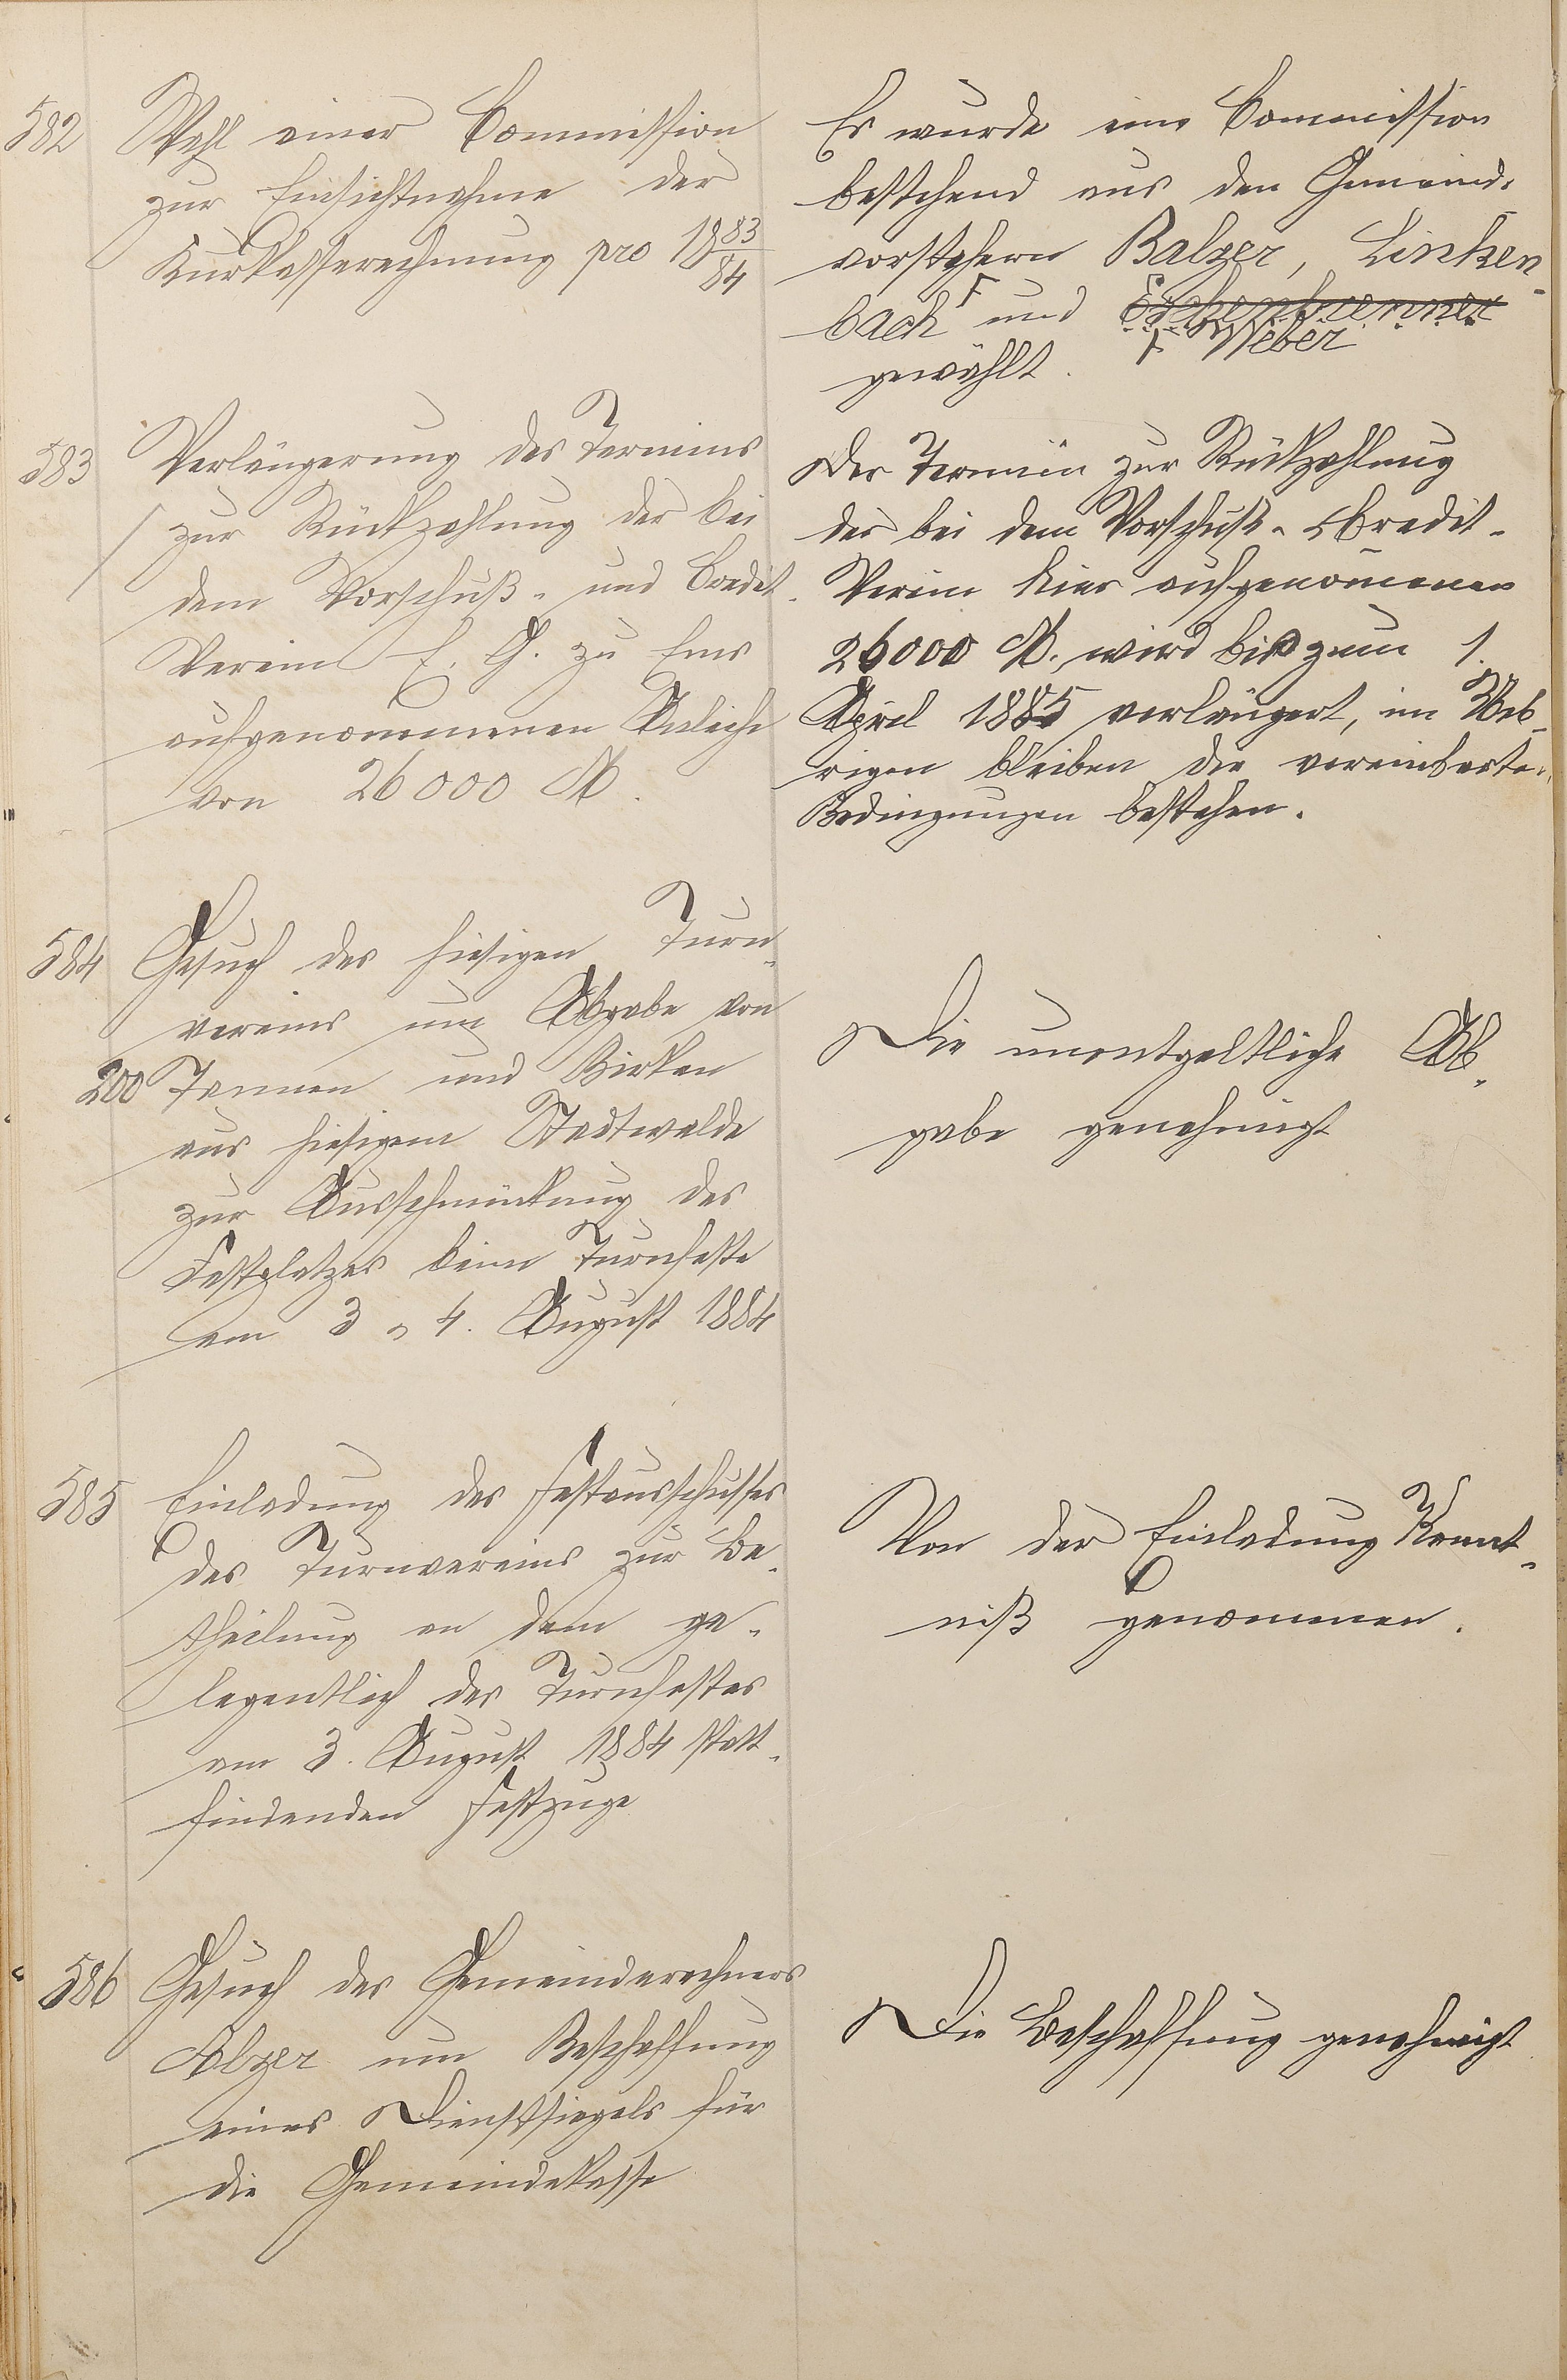 582
Wahl einer Commission
zur Einsichtnahme der
Kurkasserechnung pro 1883/84
Es wurde eine Commission
bestehend aus den Gemeinde
vorstehern Balzer, Linken-
bach und Eschenbrenner
Weber
gewählt.
583
Verlängerung des Termins
zur Rückzahlung der bei
dem Vorschuß- und Credit-
Verein E. G. zu Ems
aufgenommenen Anleihe
von 26000 M.
Der Termin zur Rückzahlung
der bei dem Vorschuß- & Credit-
Verein hier aufgenom̄enen
26000 M. wird bis zum 1.
April 1885 verlängert, im Ueb-
rigen bleiben die vereinbarten
Bedingungen bestehen.
584
Gesuch des hiesigen Turn-
vereins um Abgabe von
200 Tannen und Birken
aus hiesigem Stadtwalde
zur Ausschmückung des
Festplatzes beim Turnfeste
am 3 & 4. August 1884
Die unentgeltliche Ab-
gabe genehmigt
585
Einladung des Festausschusses
des Turnvereins zur Be-
theilung an dem ge-
legentlich des Turnfestes
am 3. August 1884 statt-
findenden Festzuge
Von der Einladung Kennt-
niß genommen.
586
Gesuch des Gemeinderechners
um Beschaffung
eines Dienstsiegels für
die Gemeindekasse
Die Beschaffung genehmigt